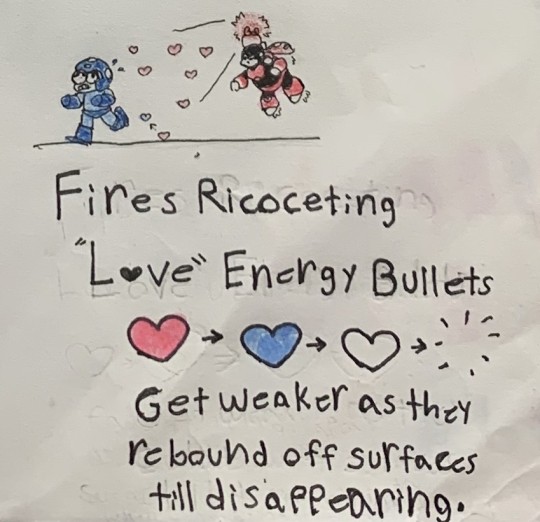 Fires Ricoceting
"Love" Energy Bullets
Get weaker as they
rebound off surfaces
till disappearing.